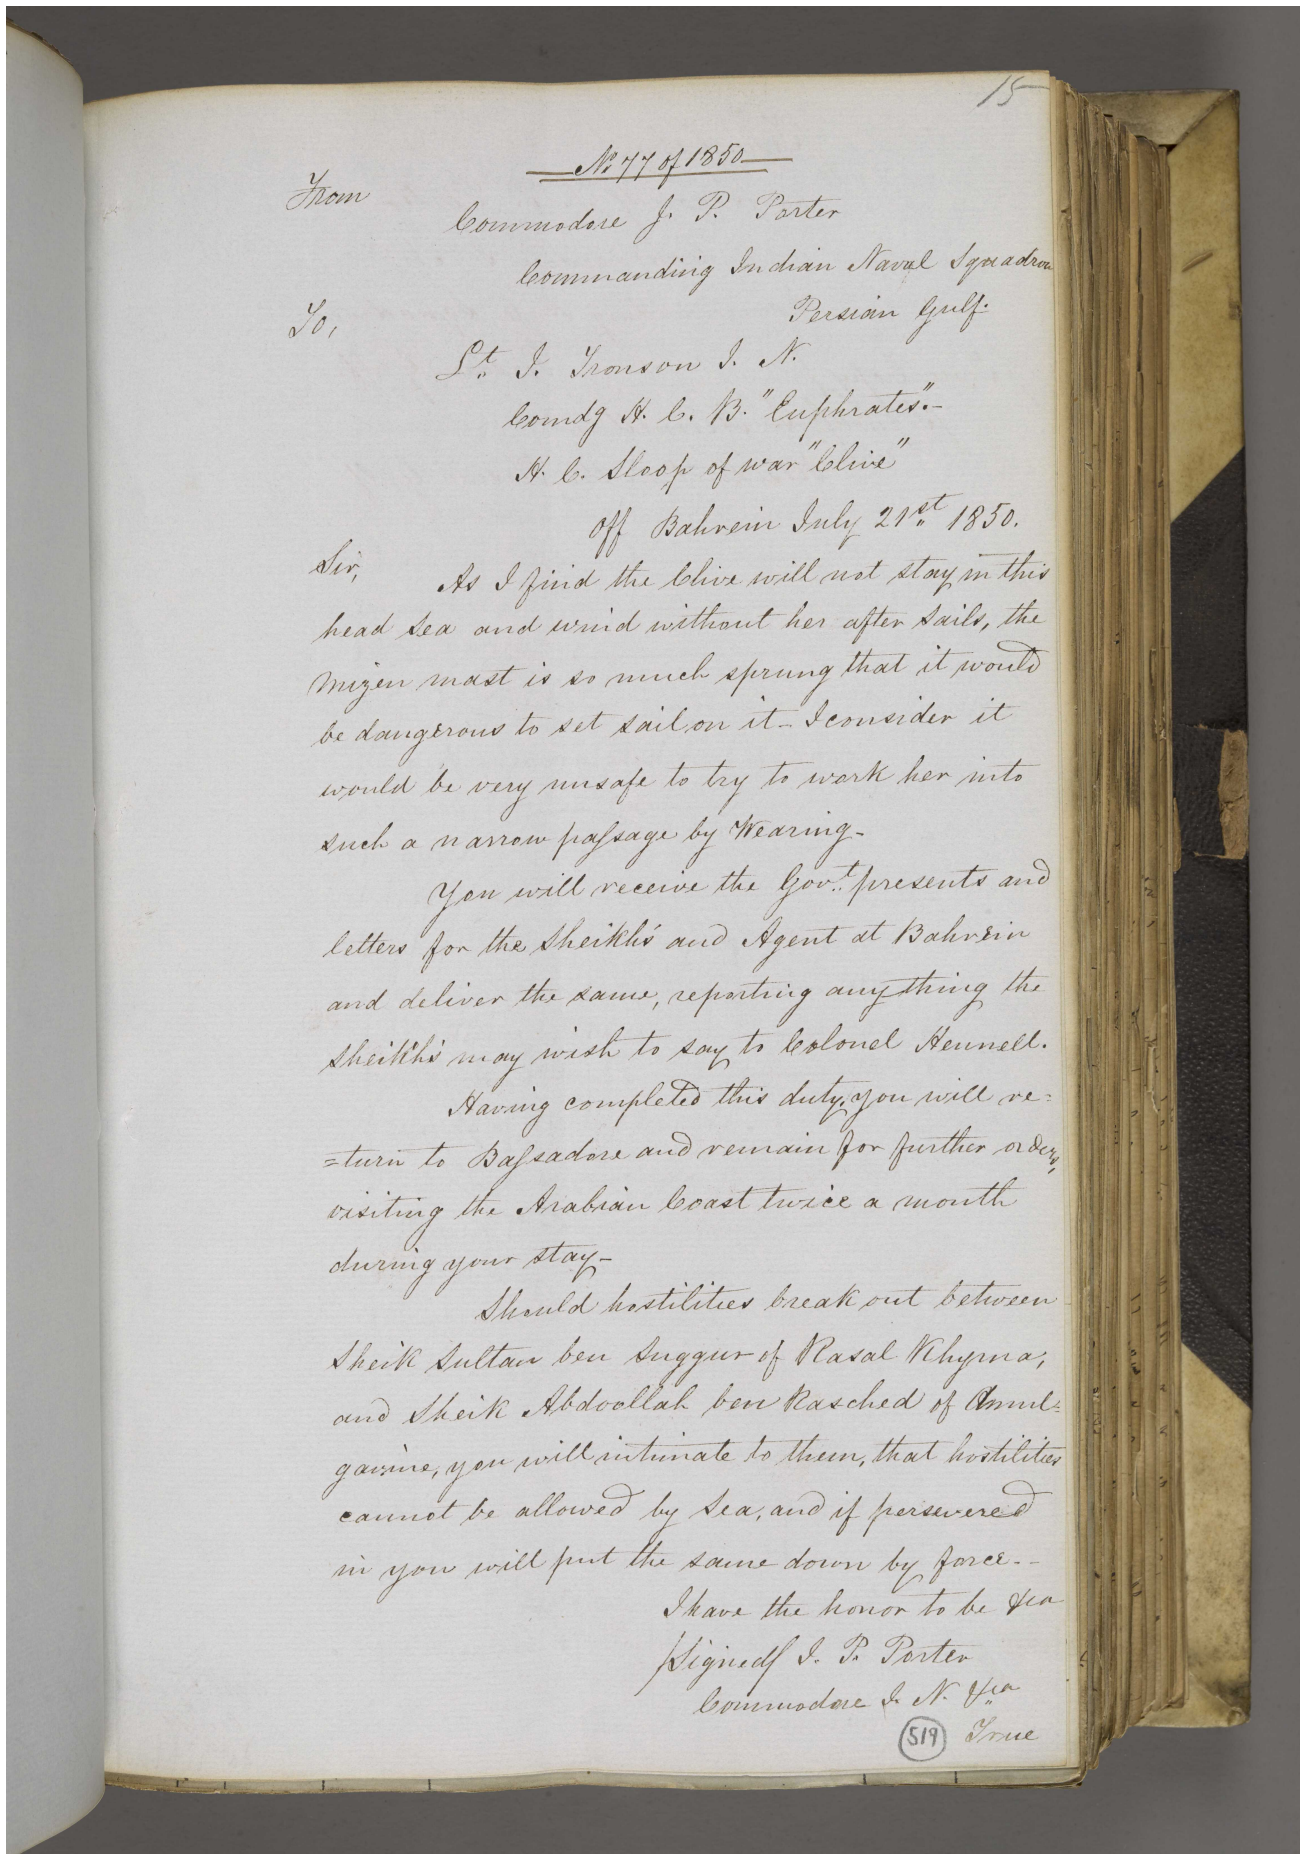 15
No. 77 of 1850
From
Commodore J. P. Porter
Commanding Indian Naval Squadron
Persian Gulf.
To,
Lt. J. Tronson I. N.
Comdg H. C. B. "Euphrates".-
H. C. Sloop of war "Clive"
off Bahrein July 21st 1850.
Sir,
As I find the Clive will not stay in this
head sea and wind without her after sails, the
mizen mast is so much sprung that it would
be dangerous to set sail on it - I consider it
would be very unsafe to try to work her into
such a narrow paſsage by Wearing -
You will receive the Govt. presents and
letters for the Sheikh's and Agent at Bahrein
and deliver the same, reporting anything the
Sheikh's may wish to say to Colonel Hennell.
Having completed this duty, you will re=
=turn to Baſsadore and remain for further orders,
visiting the Arabian Coast twice a month
during your stay -
Should hostilities break out between
Sheik Sultan ben Suggur of Rasal Khyma,
and Sheik Abdoollah ben Rasched of Amul=
gavine, you will intimate to them, that hostilities
cannot be allowed by Sea, and if persevered
in you will put the same down by force. -
I have the honor to be &ca
/Signed/ J. P. Porter
Commodore I. N. &ca
519
True